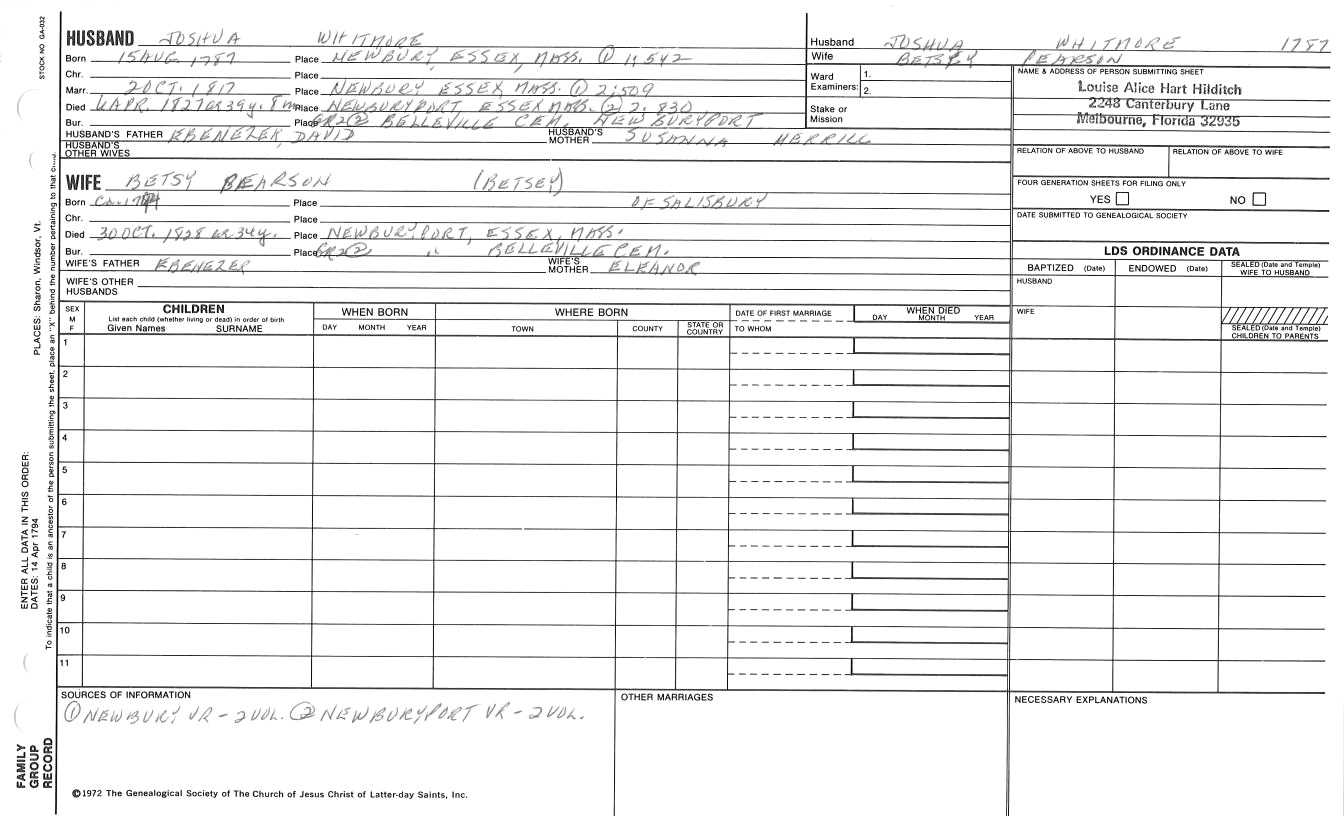 STOCK NO. GA-032
HUSBAND JOSHUA WHITMORE
Born 15 AUG 1787 Place NEWBURY, ESSEX, MASS. ① 1, 542
Chr. Place
Marr. 2 OCT. 1817 Place NEWBURY ESSEX, MASS. ① 2; 509
Died 6 APR. 1827 39y. 8m Place NEWBURYPORT ESSEX MASS. ② 2. 830
Bur. Place GR2 ② BELLEVILLE CEM. NEWBURYPORT
HUSBAND'S FATHER EBENEZER, DAVID HUSBAND'S MOTHER SUSANNA MERRILL
HUSBAND'S OTHER WIVES
WIFE BETSY PEARSON (BETSEY)
Born Ca. Place OF SALISBURY
Chr. Place
Died 30 OCT. 1828 34y. Place NEWBURYPORT, ESSEX, MASS.
Bur. Place GR2 ② " BELLEVILLE CEM.
WIFE'S FATHER EBENEZER WIFE'S MOTHER ELEANOR
WIFE'S OTHER HUSBANDS
Husband JOSHUA WHITMORE 1787
Wife BETSEY PEARSON
Ward Examiners: 1.
2.
Stake or Mission
NAME & ADDRESS OF PERSON SUBMITTING SHEET
Louise Alice Hart Hilditch
2248 Canterbury Lane
Melbourne, Florida 32935
RELATION OF ABOVE TO HUSBAND RELATION OF ABOVE TO WIFE
FOUR GENERATION SHEETS FOR FILING ONLY
YES NO
DATE SUBMITTED TO GENEALOGICAL SOCIETY
LDS ORDINANCE DATA
BAPTIZED (Date) ENDOWED (Date) SEALED (Date and Temple) WIFE TO HUSBAND
HUSBAND
WIFE
SEALED (Date and Temple) CHILDREN TO PARENTS
SEX M F
CHILDREN
List each child (whether living or dead) in order of birth
Given Names SURNAME
WHEN BORN
DAY MONTH YEAR
WHERE BORN
TOWN COUNTY STATE OR COUNTRY
DATE OF FIRST MARRIAGE
TO WHOM
WHEN DIED
DAY MONTH YEAR
1
2
3
4
5
6
7
8
9
10
11
SOURCES OF INFORMATION
① NEWBURY VR - 2 VOL. ② NEWBURYPORT VR - 2 VOL.
OTHER MARRIAGES
NECESSARY EXPLANATIONS
©1972 The Genealogical Society of The Church of Jesus Christ of Latter-day Saints, Inc.
FAMILY GROUP RECORD
ENTER ALL DATA IN THIS ORDER:
DATES: 14 Apr 1794
PLACES: Sharon, Windsor, Vt.
To indicate that a child is an ancestor of the person submitting the sheet, place an "X" behind the number pertaining to that